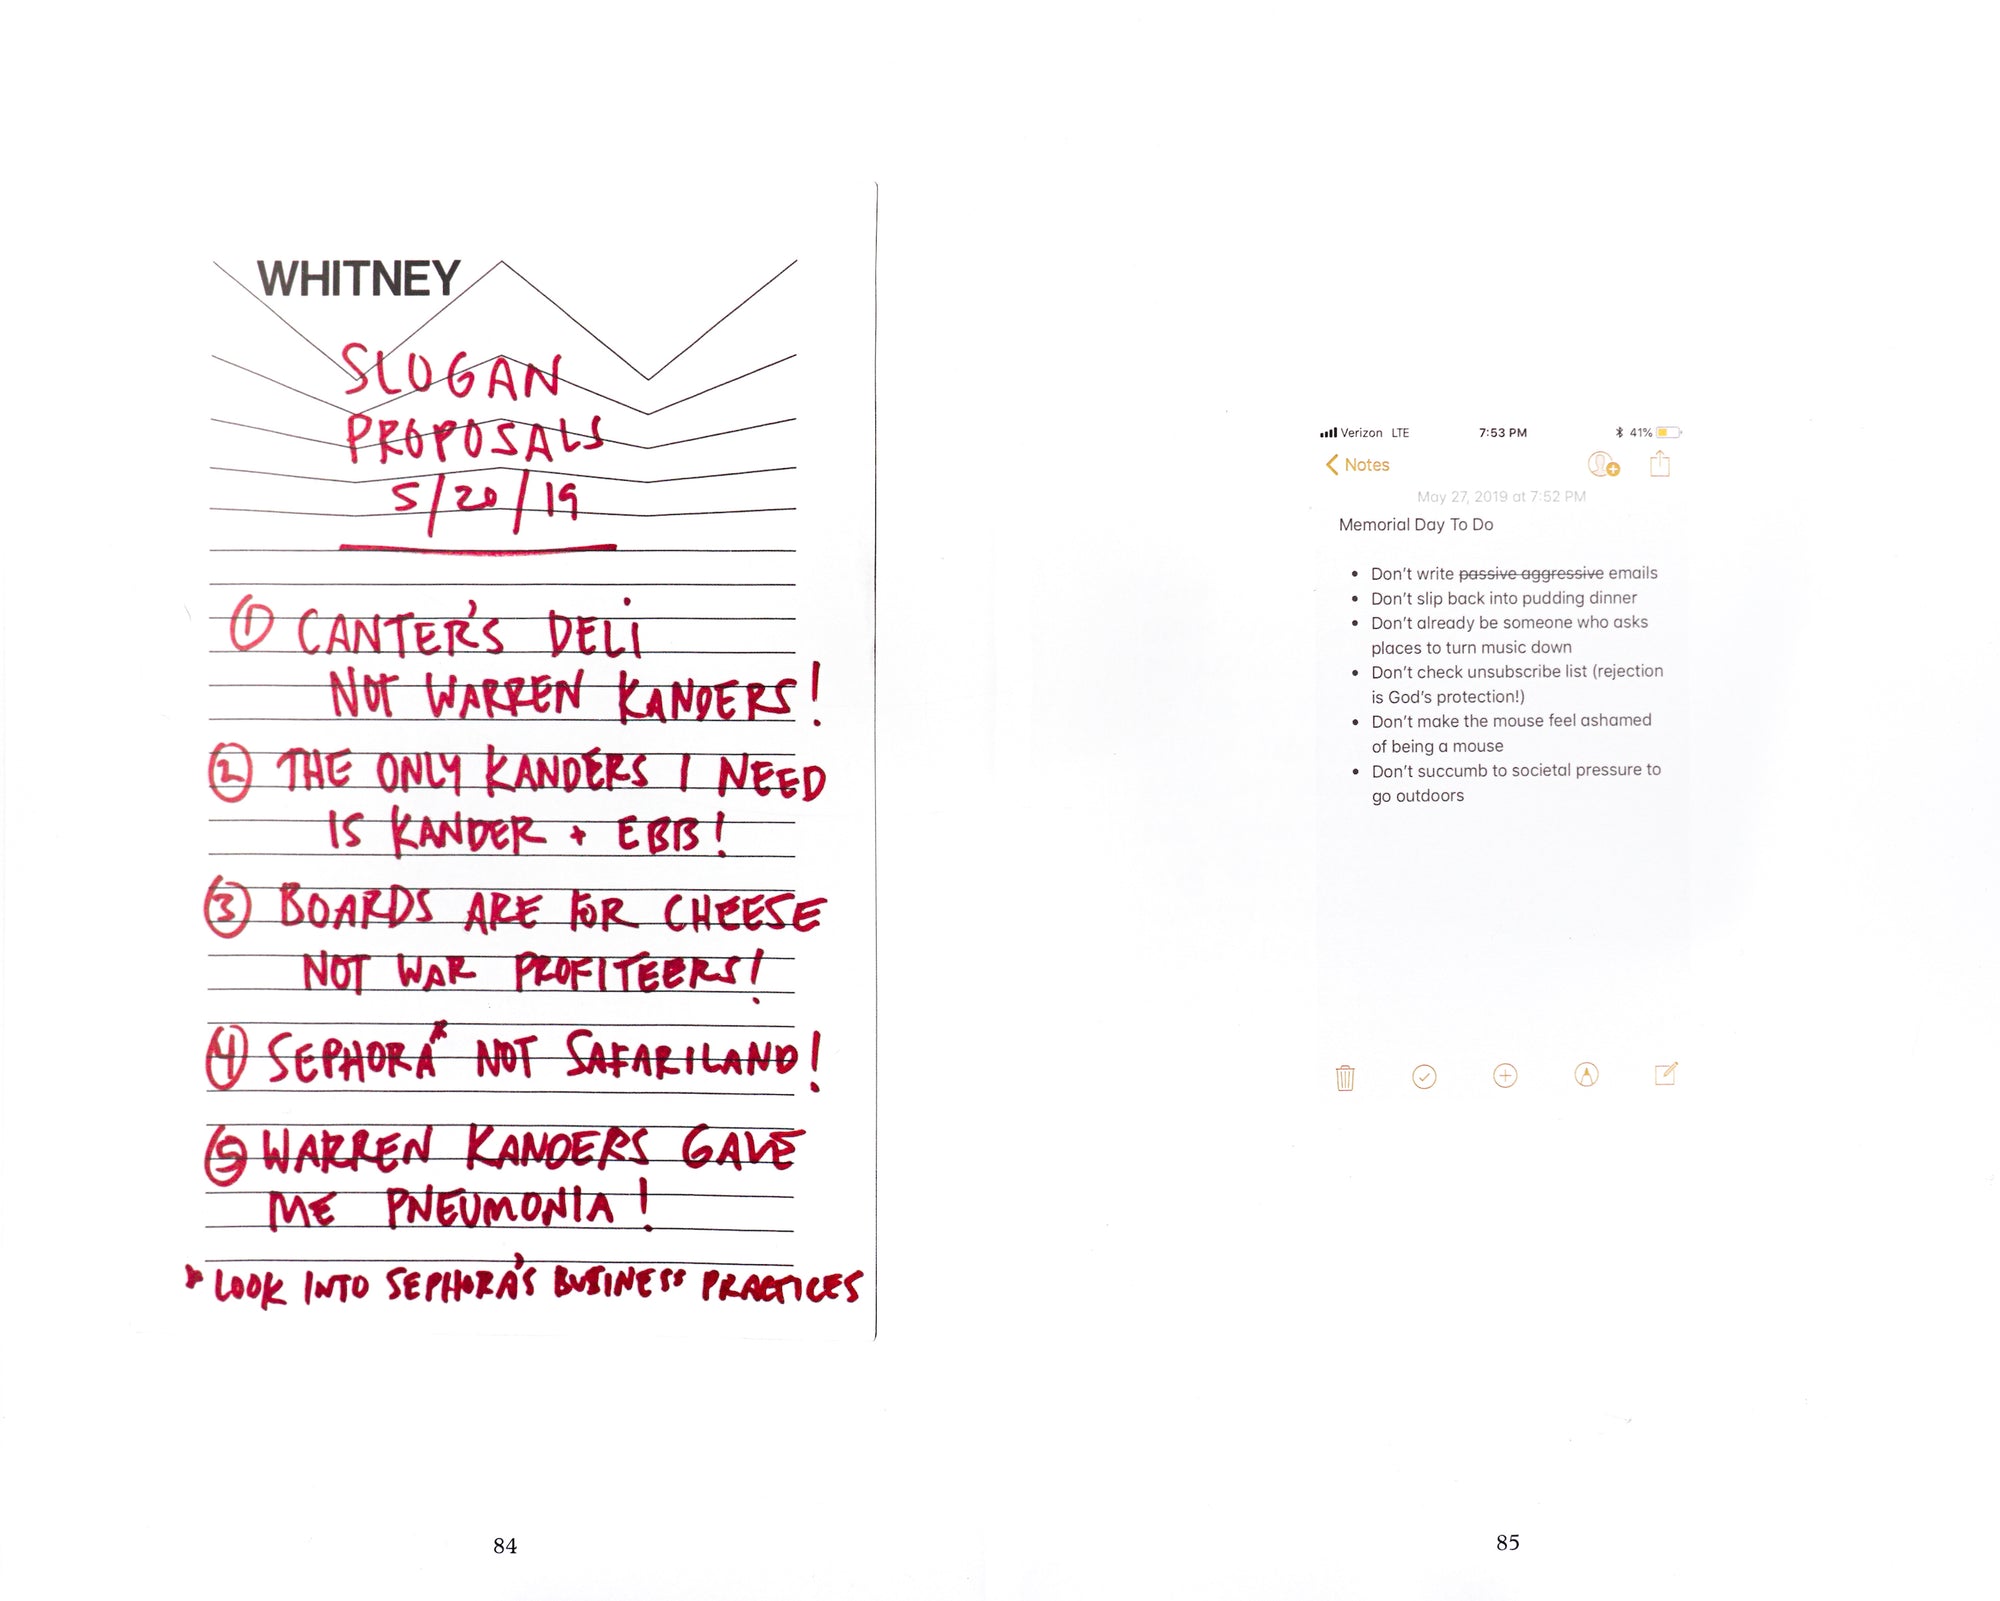 WHITNEY
SLOGAN
PROPOSALS
5/20/19
① CANTER'S DELI
NOT WARREN KANDERS!
② THE ONLY KANDERS I NEED
IS KANDER + EBB!
③ BOARDS ARE FOR CHEESE
NOT WAR PROFITEERS!
④ SEPHORA* NOT SAFARILAND!
⑤ WARREN KANDERS GAVE
ME PNEUMONIA!
* LOOK INTO SEPHORA'S BUSINESS PRACTICES
84
Verizon LTE 7:53 PM 41%
Notes
May 27, 2019 at 7:52 PM
Memorial Day To Do
• Don't write passive aggressive emails
• Don't slip back into pudding dinner
• Don't already be someone who asks
places to turn music down
• Don't check unsubscribe list (rejection
is God's protection!)
• Don't make the mouse feel ashamed
of being a mouse
• Don't succumb to societal pressure to
go outdoors
85